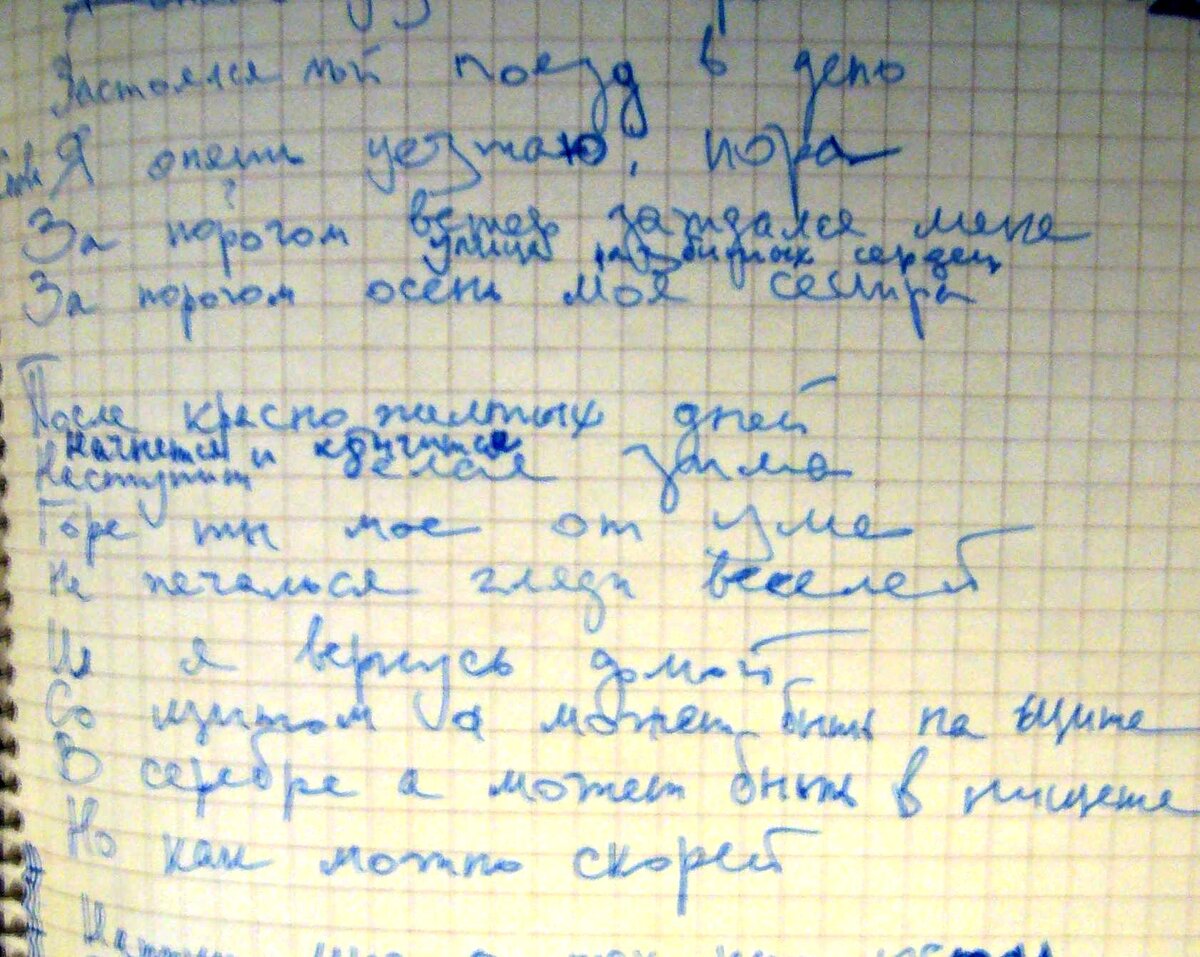 Застоялся мой поезд в депо
Я опять уезжаю, пора
За порогом ветер заждался меня
улица разбитых сердец
За порогом осень моя сестра
После красно желтых дней
Начнется и кончится
Наступит белая зима
Горе ты мое от ума
Не печалься гляди веселей
И я вернусь домой
Со щитом а может быть на щите
В серебре а может быть в нищете
Но как можно скорей